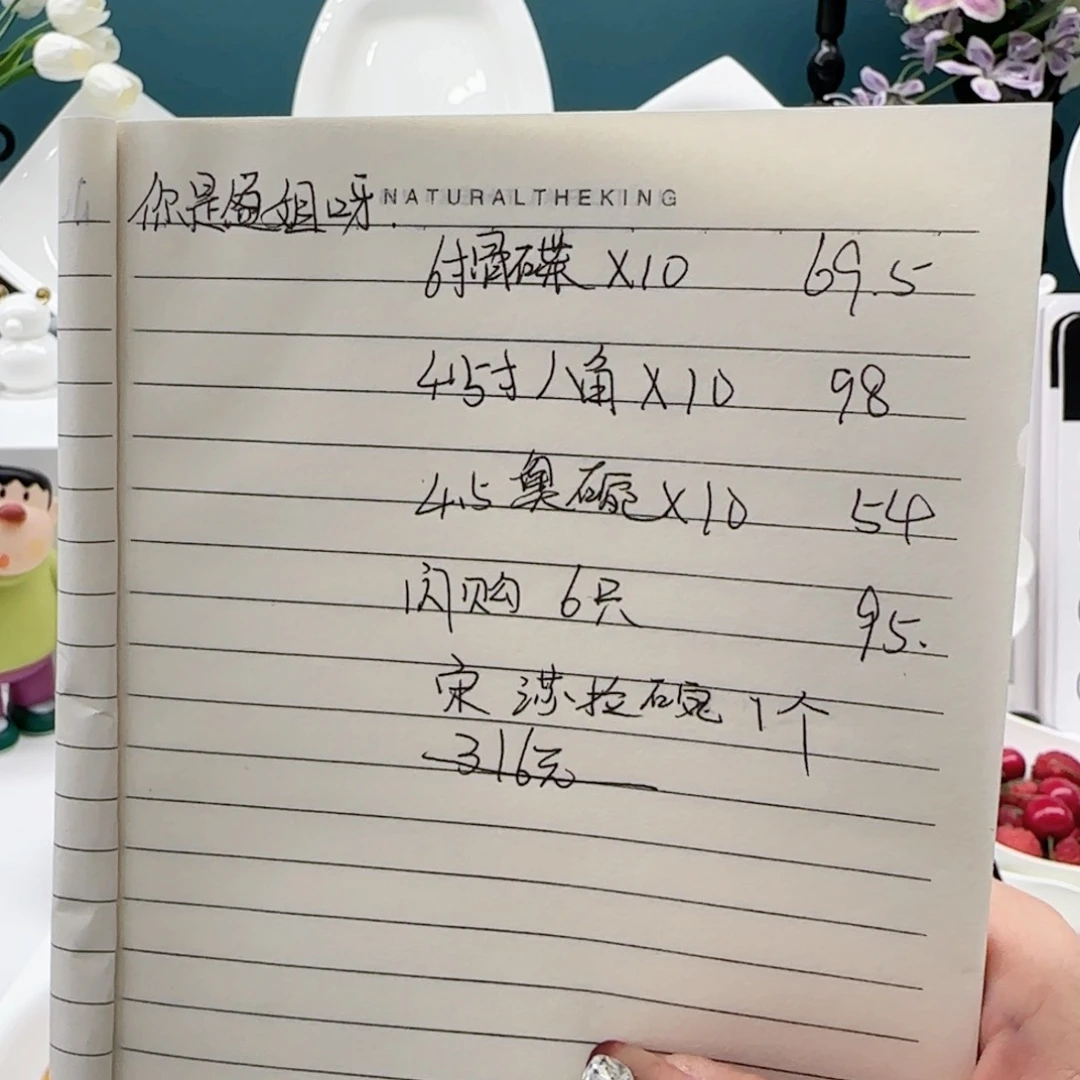 你是 姐呀. NATURALTHEKING
6寸 碟 X10 69.5
4.5寸八角X10 98
4.5奥碗X10 54
闪购 6只 95.
宋 莎拉碗 1个
316元